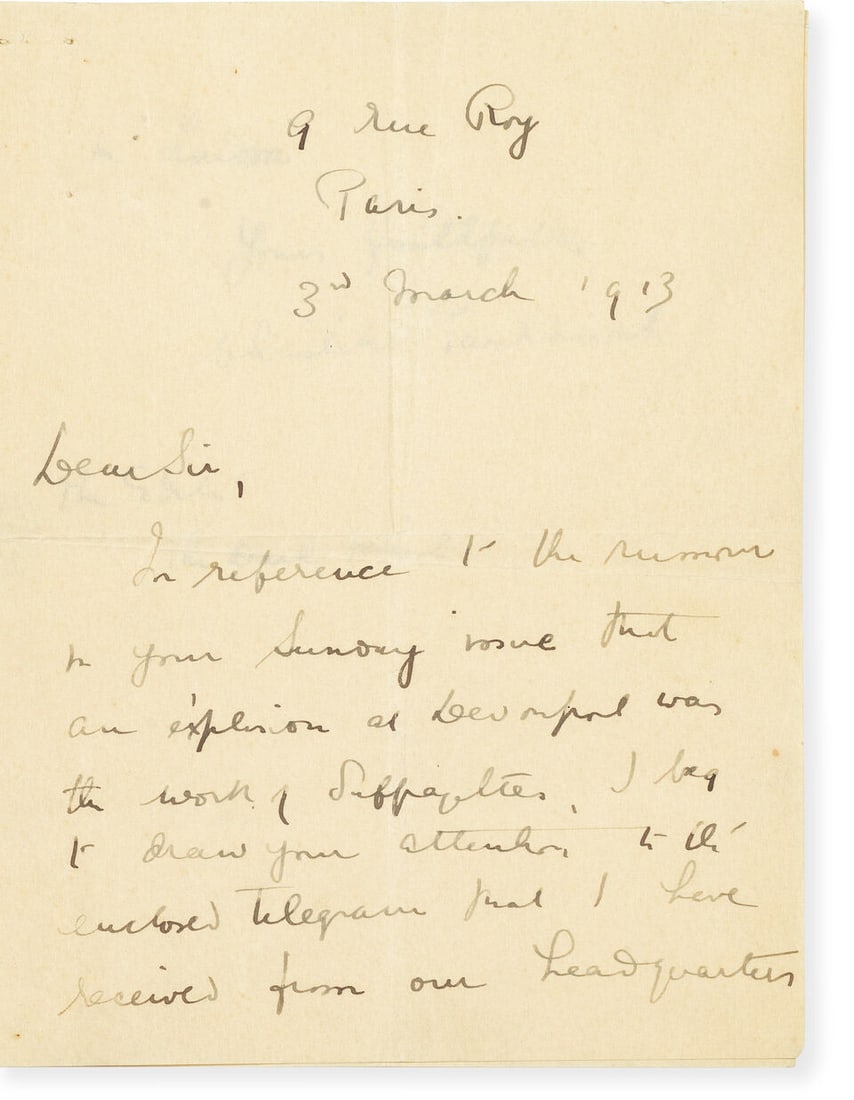 9 rue Roy
Paris.
3rd March 1913
Dear Sir,
In reference to the rumour
in your Sunday issue that
an explosion at Devonport was
the work of Suffragettes, I beg
to draw your attention to the
enclosed telegram that I have
received from our headquarters